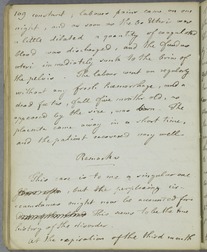 constant, labour pains came on one
night, and as soon as the Os Uteri was
a little dilated a quantity of coagulated
blood was discharged, and the fundus
uteri immediately sunk to the brim of
the pelvis. The labour went on regularly
without any fresh hæmorrhage, and a
dead fœtus, full five months old, as
appeared by the size, was born. The
placenta came away in a short time,
and the patient recovered very well.
Remarks
This case is to me a singular one
but the perplexing circumstances might now be accounted for
This seems to be the true
history of the disorder
at the expiration of the third month